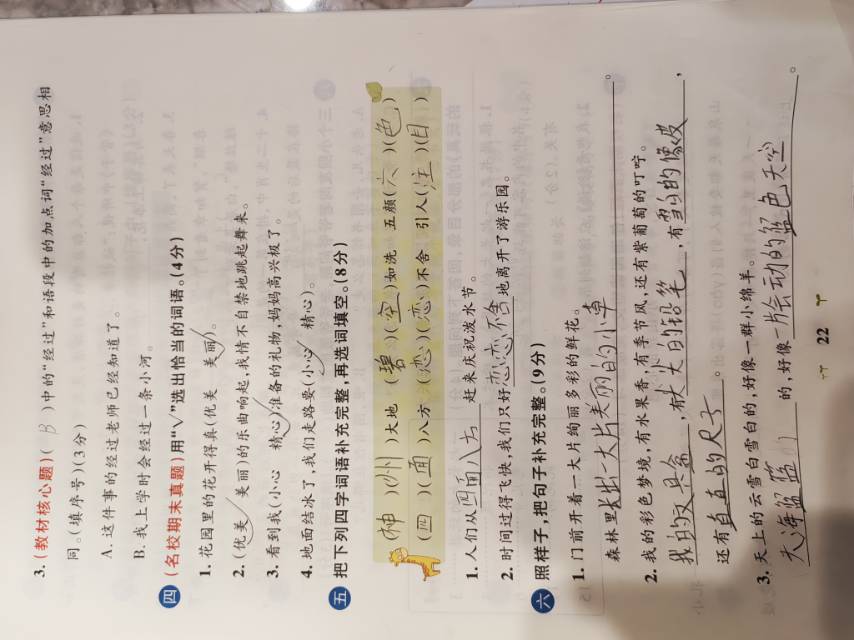 3.(教材核心题)( B )中的“经过”和语段中的加点词“经过”意思相
同。(填序号)(3分)
A.这件事的经过老师已经知道了。
B.我上学时会经过一条小河。
四 (名校期末真题)用“√”选出恰当的词语。(4分)
1.花园里的花开得真(优美 美丽√)。
2.(优美√ 美丽)的乐曲响起,我情不自禁地跳起舞来。
3.看到我(小心 精心√)准备的礼物,妈妈高兴极了。
4.地面结冰了,我们走路要(小心√ 精心)。
五 把下列四字词语补充完整,再选词填空。(8分)
(神)(州)大地 (碧)(空)如洗 五颜(六)(色)
(四)(面)八方 (恋)(恋)不舍 引人(注)(目)
1.人们从四面八方赶来庆祝泼水节。
2.时间过得飞快,我们只好恋恋不舍地离开了游乐园。
六 照样子,把句子补充完整。(9分)
1.门前开着一大片绚丽多彩的鲜花。
森林里长出一大片美丽的小草。
2.我的彩色梦境,有水果香,有季节风,还有紫葡萄的叮咛。
我的文具盒,有长长的铅笔,有雪白的橡皮,
还有直直的尺子。
3.天上的云雪白雪白的,好像一群小绵羊。
大海蓝蓝的,好像一片会动的蓝色天空。
22